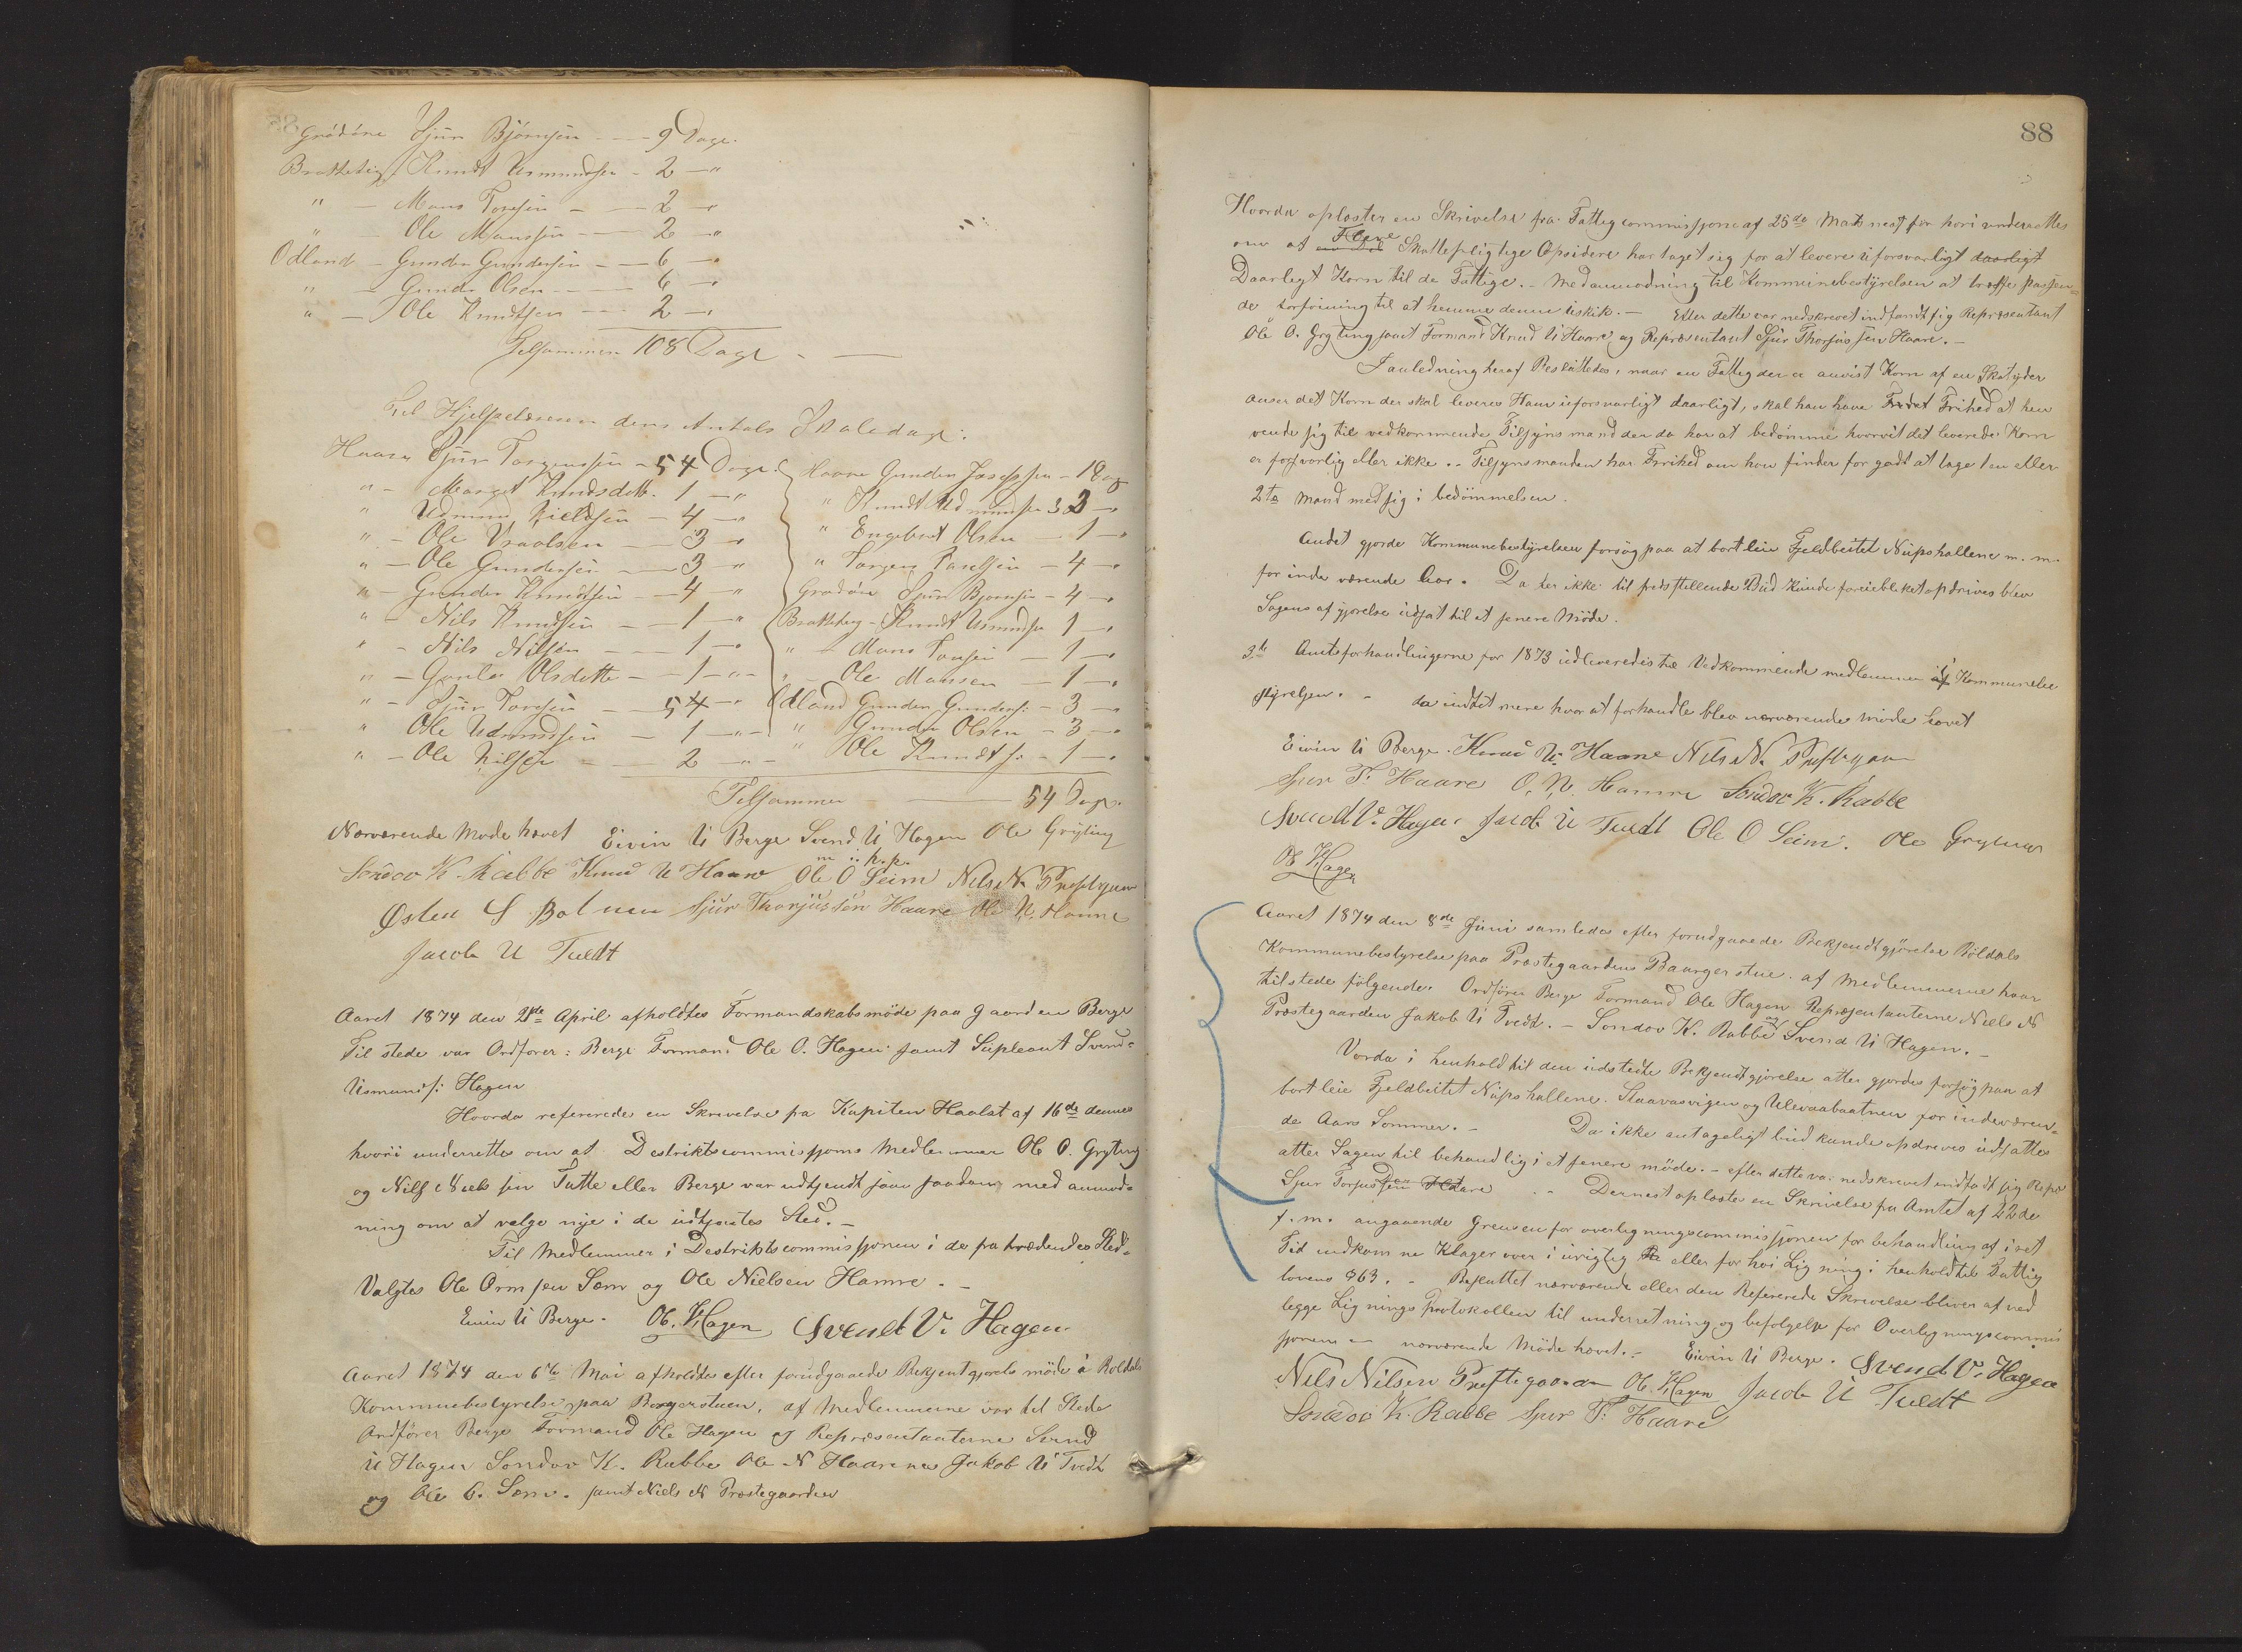 Grödöne Sjur Björnsen - 9 Dage.
Bratteteig Knudt Usmundsen - 2 - "
" - Mans Toresen - 2 - "
" - Ole Manssen - 2 - "
Odland - Gunder Gundersen - 6 - "
" - Gunder Olsen - 6 - "
" - Ole Knudtsen - 2 - "
Tilsammen 108 Dage
Til Hjelpelæreren dens Antals Skoledage:
Haare Sjur Torgeussen - 54 Dage
" - Marget Knudsdtt. 1 - "
" Udmund Nieldsen - 4 - "
" - Ole Vraalsen - 3 - "
" - Ole Gundersen - 3 - "
" - Gunder Knudtsen - 4 - "
" - Nils Knudsen - 1 - "
" - Nils Nilsen - 1 - "
" - Olsdotte - 1 - "
" - Sjur Toresen - 54 - "
" Ole Udmundsen - 1 - "
" - Ole Nilsen - 2 - "
Haare Gunder Josepsen - 1 Dag
" Knudt Udmundsen 3
" Engebret Olsen - 1 - "
" Torgeir - 4 - "
Grödöne Sjur Bjørnsen - 4 - "
Bratteteig - Knudt Usmundsen 1 - "
" - Mans Torsen - 1 - "
" - Ole Mansen - 1 - "
Odland Gunder Gunders: - 3 - "
" Gunder Olsen - 3 - "
" Ole Knudts: - 1 - "
Tilsammen 54 Dage.
Nærværende Møde hævet Eivin U Berge Svend U Hagen Ole Gryting
m. i. p. p.
Sondov K. Rabbe Knud U Haare Ole O Seim Nels N. Prestgaar
Østen S Botnen Sjur Thorjussön Haare Ole N. Hamre
Jacob U Tvedt
Aaret 1874 den 21de April afholdtes Formandskabsmöde paa Gaarden Berge
Til stede var Ordfører: Berge Formand Ole O. Hagen samt Supleant Svend
Usmunds: Hagen
Hvorda refererede en Skrivelse fra Kapiten Haalst af 16de dennes
hvori underrettes om at Destriktscommissjonens Medlemmer Ole O. Gryting
og Nils Nielssen Tutte eller Berge var udtjendt som saadan med anmod=
ning om at valge nye i de udtjentes Sted. -
Til Medlemmer i Destriktscommissjonen i de fratrædendes Sted
Valgtes Ole Ormsen Sem og Ole Nielsen Hamre. -
Eivin U Berge. Ol. Hagen Svendt V. Hagen
Aaret 1874 den 6te Mai afholdtes efter forudgaaede Bekjentgjörels möde i Röldals
Kommunebestyrelse paa Borgerstuen, af Medlemmerne var tel Stede
Ordfører Berge Formand Ole Hagen og Repræsentanterne Svend
U Hagen Sondov K. Rabbe Ole N Jakob U Tvedt
og Ole O. Sem. samt Niels N Præstegaarden
88
Hvorda oplæstes en Skrivelse fra Fattigcommissjonen af 25de Marts næst för hvori underrettes
om at Flere Skattepligtige Opsidere har taget sig for at levere uforsvarligt daarligt
Daarligt Korn til de Fattige. - Med anmodning til Kommunebestyrelsen at træffe passen=
de forföining til at hemme denne uskik. - Efter dette var nedskrevet indfandt sig Repræsentant
Ole O. Gryting samt Formand Knud U Haare og Repræsentant Sjur Thorjussen Haare. -
I anledning heraf Besluttedes, naar en Fattig der er anvist Korn af en Skatyder
anser det Korn der skal leveres Ham uforsvarligt daarligt, skal han have Fredet Frihed at hen
vende sig til vedkommende Tilsyns mand der da har at bedömme hvorvit det leverede Korn
er forsvarlig eller ikke. - Tilsynsmanden har Frihed om han finder for godt at tage 1en eller
2to Mand med sig i bedömmelsen.
Andet gjorde Kommunebestyrelsen forsög paa at bortleie Fjeldbeitet Nupshallene m. m.
for inde værende Aar. Da der ikke til fredsstillende Bud kunde foreieblikket opdrives blev
Sagens afgjorelse udsat til et senere Möde.
3de Amtsforhandlingerne for 1873 udleveredes til Vedkommende medlemmer af Kommunebe
styrelsen. - da indtet mere hvor at forhandle blev nærværende möde hævet
Eivin U Berge. Knud U. Haare Nils N. Prestegaar
Sjur T. Haare O. N. Hamre Sondov K. Rabbe
Svend V. Hagen Jacob U Tvedt Ole O Seim. Ole Gryting
Ol. Hagen
Aaret 1874 den 8de Juni samledes efter forudgaaede Bekjendtgjörelse Röldals
Kommunebestyrelse paa Præstegaardens Baargerstue. af Medlemmerne haar
tilstede fölgende. Ordförer Berge Formand Ole Hagen Repræsentanterne Niels N
Præstegaarden Jakob U Tvedt. - Sondov K. Rabbe og Svend U Hagen. -
Vorda i henhold til den udstedte Bekjendtgjörelse atter gjordes forsög paa at
bortleie Fjeldbeitet Nupshallene. Staavasvigen og Ulevaabaatnen for indeværen=
de Aars Sommer. - Da ikke antageligt bud kunde opdreves udsattes
atter Sagen til behandlig i et senere möde. - efter dette var nedskrevet indfadt sig Repr
Sjur Torjussen Haare. - Dernest oplæste en Skrivelse fra Amtet af 22de
f. m. angaaende Grensen for overlegningscommissjonen for behandling af i ret
Tid indkomne Klager over i urigtig eller for höi Ligning i henhold til Fattig
lovens § 63. - Besluttet nærværende eller den Refererede Skrevelse bliver at ved
legge Lignings Protokollen til underretning og befölgelse for Overlegningscommis
sjonen - nærværende Möde hævet. - Eivin U Berge. Svendt V. Hagen
Nils Nilsen Prestegaarden Ol. Hagen Jacob U Tvedt
Sondov K. Rabbe Sjur T. Haare